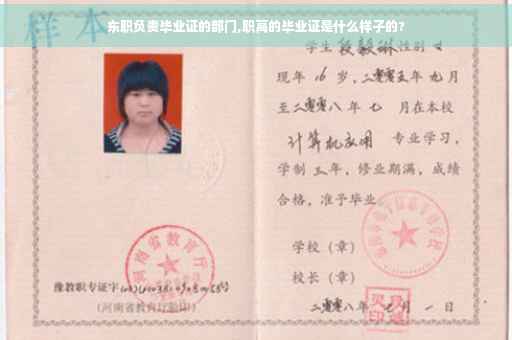 东职负责毕业证的部门,职高的毕业证是什么样子的?
样本
学生段毅琳性别女
现年16岁,二零零五年九月
至二零零八年七月在本校
计算机应用 专业学习,
学制三年,修业期满,成绩
合格,准予毕业。
学校(章)
校长(章)
二零零八年 月一日
河南省教育厅
豫教职专证字
(河南省教育厅验印)